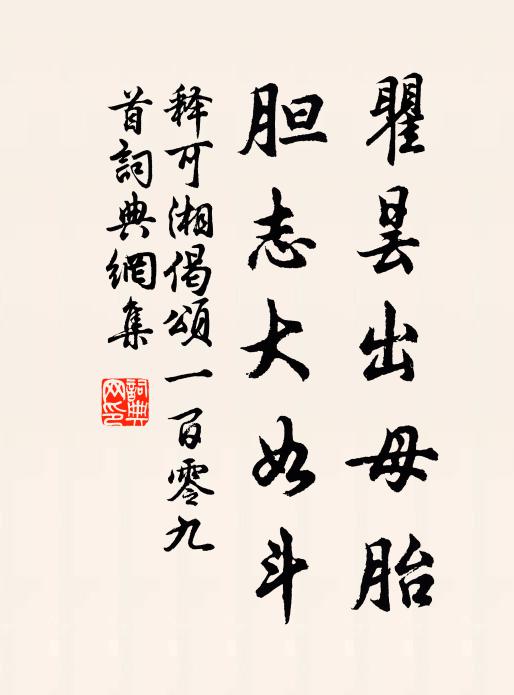 瞿昙出母胎
胆志大如斗
释可湘偈頌一百零九
首詞典網集
詞典網印